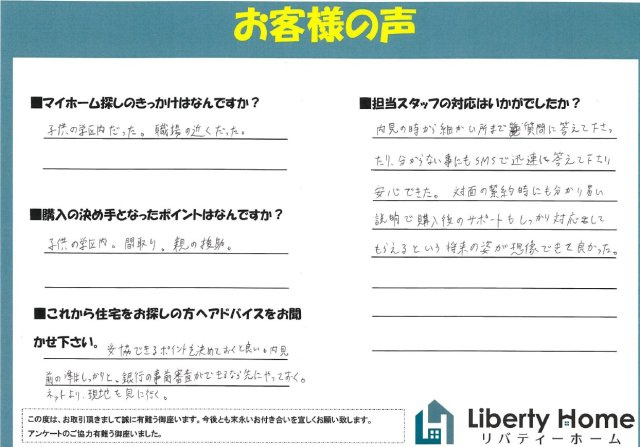 お客様の声
■マイホーム探しのきっかけはなんですか？
子供の学区内だった。職場の近くだった。
■購入の決め手となったポイントはなんですか？
子供の学区内。間取り。親の援助。
■これから住宅をお探しの方へアドバイスをお聞
かせ下さい。
妥協できるポイントを決めておくと良い。内見
前の準備しっかりと、銀行の事前審査ができるなら先にやっておく。
ネットより、現地を見に行く。
■担当スタッフの対応はいかがでしたか？
内見の時から細かい所まで質問に答えて下さっ
たり、分からない事にもSMSで迅速に答えて下さり
安心できた。対面の契約時にも分かり易い
説明で購入後のサポートもしっかり対応して
もらえるという将来の姿が想像できて良かった。
この度は、お取引頂きまして誠に有難う御座います。今後とも末永いお付き合いを宜しくお願い致します。
アンケートのご協力有難う御座いました。
Liberty Home
リバティーホーム